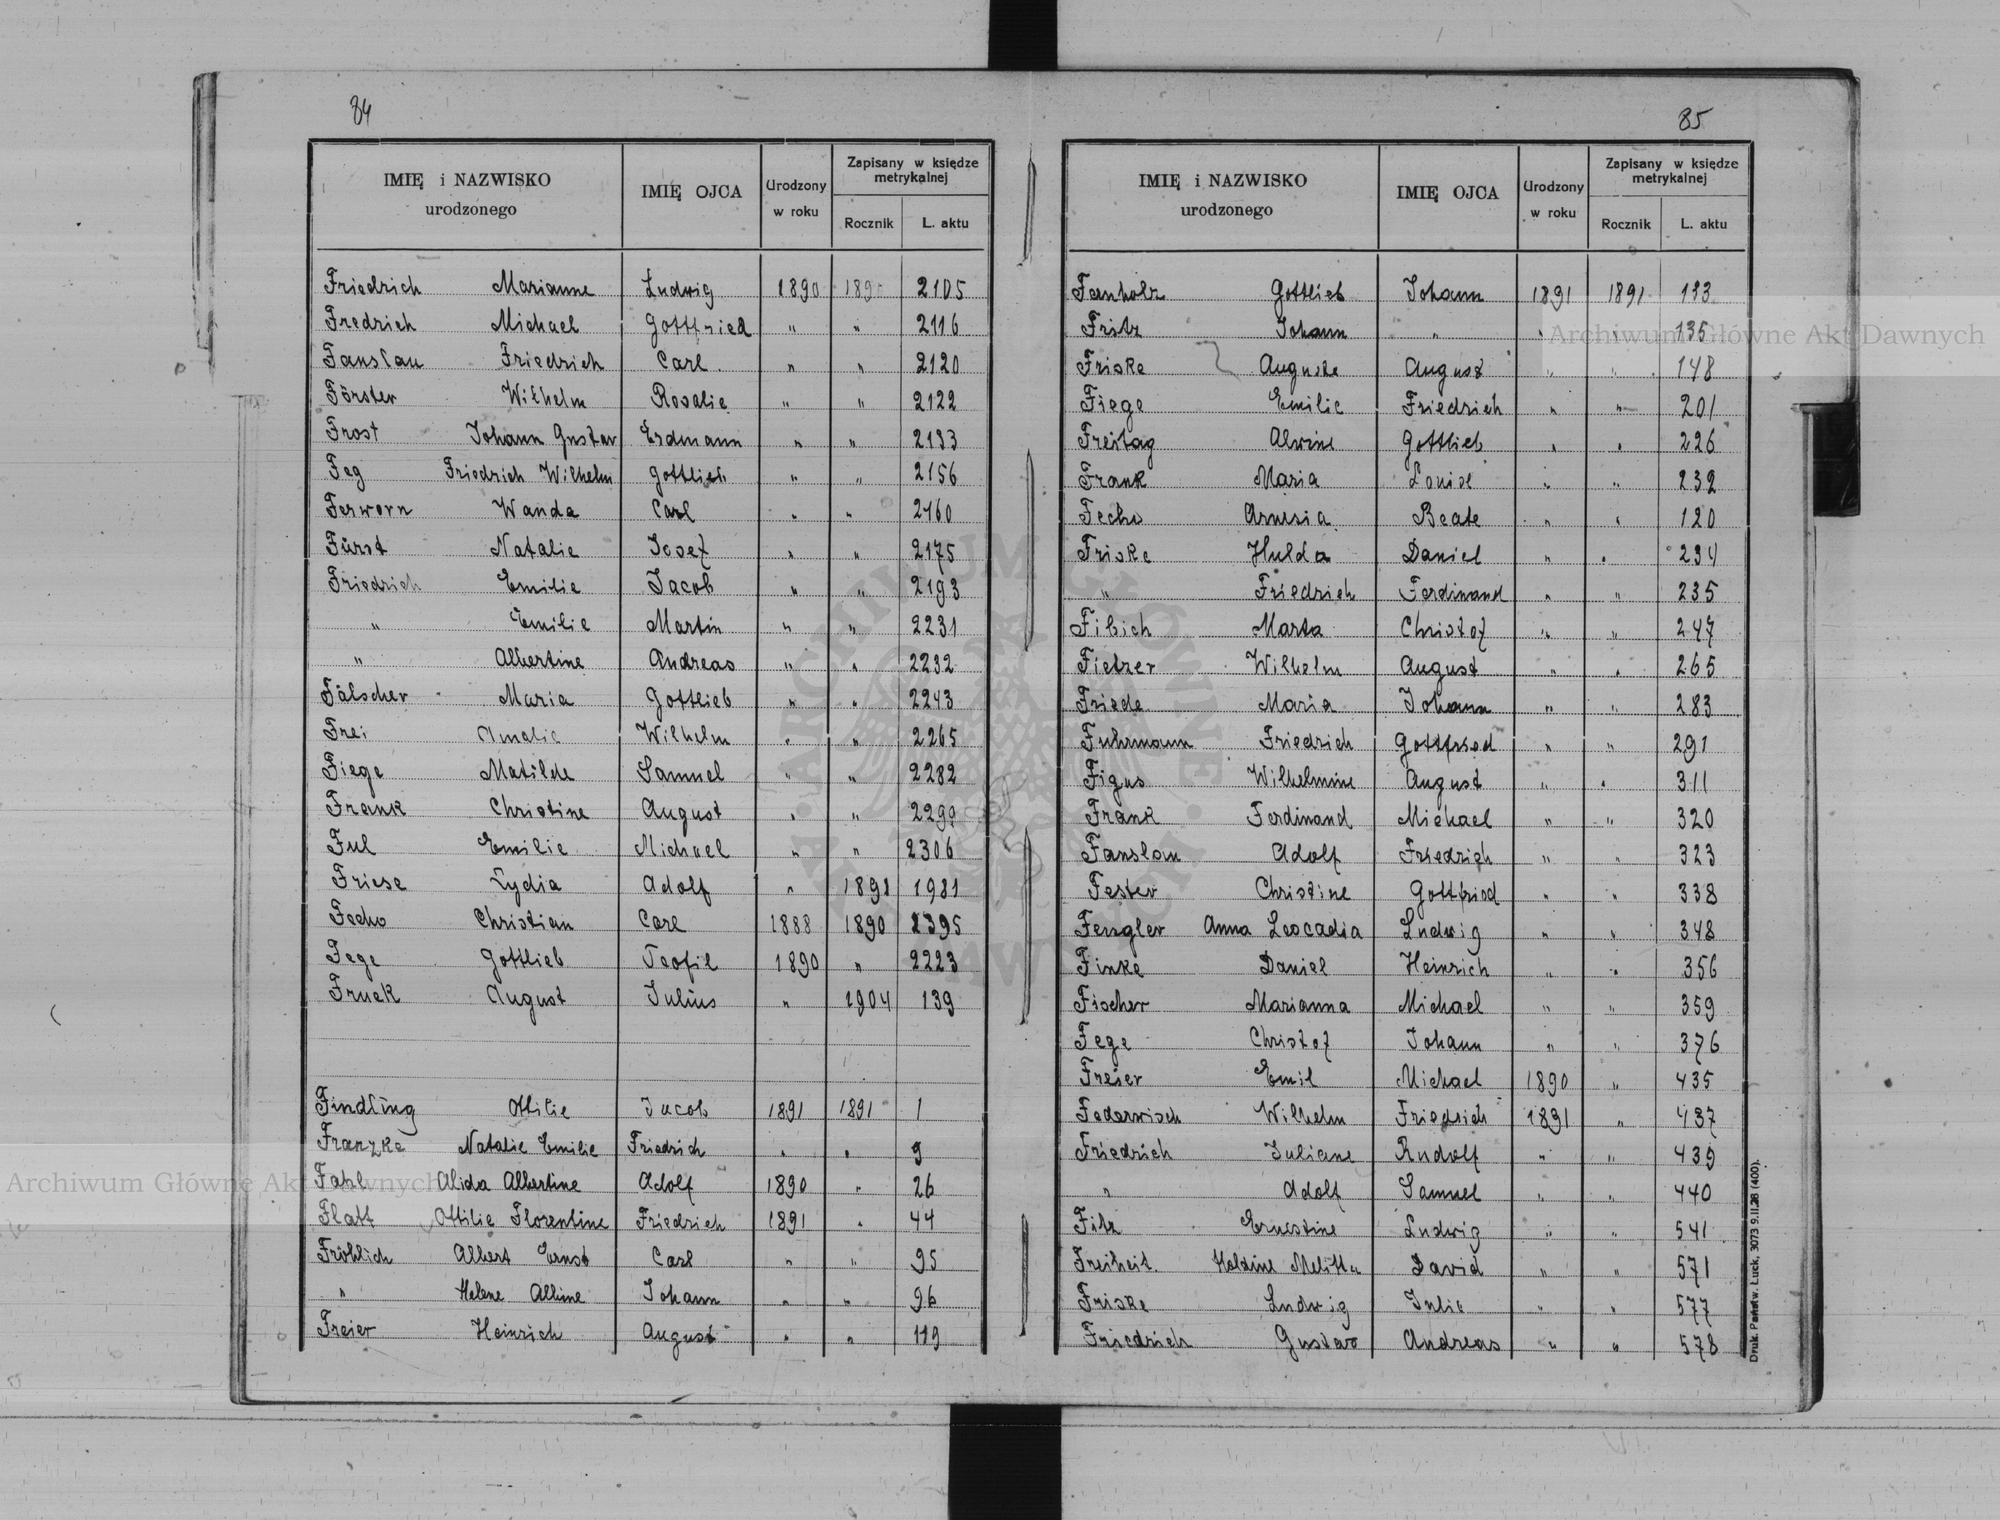 84
IMIĘ i NAZWISKO urodzonego IMIĘ OJCA Urodzony w roku Zapisany w księdze metrykalnej Rocznik L. aktu
Friedrich Marianne Ludwig 1890 1890 2105
Fredrich Michael Gottfried " " 2116
Fanslau Friedrich Carl " " 2120
Förster Wilhelm Rosalie " " 2122
Frost Johann Gustav Erdmann " " 2133
Feg Friedrich Wilhelm Gottlieb " " 2156
Ferworn Wanda Carl " " 2160
Fürst Natalie Josef " " 2175
Friedrich Emilie Jacob " " 2193
" Emilie Martin " " 2231
" Albertine Andreas " " 2232
Fälscher Maria Gottlieb " " 2243
Frei Amalie Wilhelm " " 2265
Fiege Matilde Samuel " " 2282
Frank Christine August " " 2299
Ful Emilie Michael " " 2306
Friese Lydia Adolf " 1891 1981
Fecho Christian Carl 1888 1890 2395
Fege Gottlieb Teofil 1890 " 2223
Fruek August Julius " 1904 139
Findling Ottilie Jacob 1891 1891 1
Franzke Natalie Emilie Friedrich " " 9
Fahl Alida Albertine Adolf 1890 " 26
Flatt Ottilie Florentine Friedrich 1891 " 44
Fröhlich Albert Ernst Carl " " 95
" Helene Albine Johann " " 96
Freier Heinrich August " " 119
85
IMIĘ i NAZWISKO urodzonego IMIĘ OJCA Urodzony w roku Zapisany w księdze metrykalnej Rocznik L. aktu
Fernholz Gottlieb Johann 1891 1891 133
Fritz Johann " " " 135
Friske Auguste August " " 148
Fiege Emilie Friedrich " " 201
Freitag Alwine Gottlieb " " 226
Frank Maria Louise " " 232
Fecho Arnesia Beate " " 120
Friske Hulda Daniel " " 234
" Friedrich Ferdinand " " 235
Fibich Marta Christof " " 247
Fietzer Wilhelm August " " 265
Friede Maria Johann " " 283
Fuhrmann Friedrich Gottfried " " 291
Figus Wilhelmine August " " 311
Frank Ferdinand Michael " " 320
Fanslau Adolf Friedrich " " 323
Fester Christine Gottfried " " 338
Fengler Anna Leocadia Ludwig " " 348
Finke Daniel Heinrich " " 356
Fischer Marianna Michael " " 359
Fege Christof Johann " " 376
Freier Emil Michael 1890 " 435
Federwisch Wilhelm Friedrich 1891 " 437
Friedrich Juliane Rudolf " " 439
" Adolf Samuel " " 440
Filz Ernestine Ludwig " " 541
Freiheit Holdine Melitta David " " 571
Friske Ludwig Julie " " 577
Friedrich Gustav Andreas " " 578
Druk. Państw. Łuck, 3073 9.II.28 (400).
Archiwum Główne Akt Dawnych
Archiwum Główne Akt Dawnych
ARCHIWUM GŁÓWNE AKT DAWNYCH